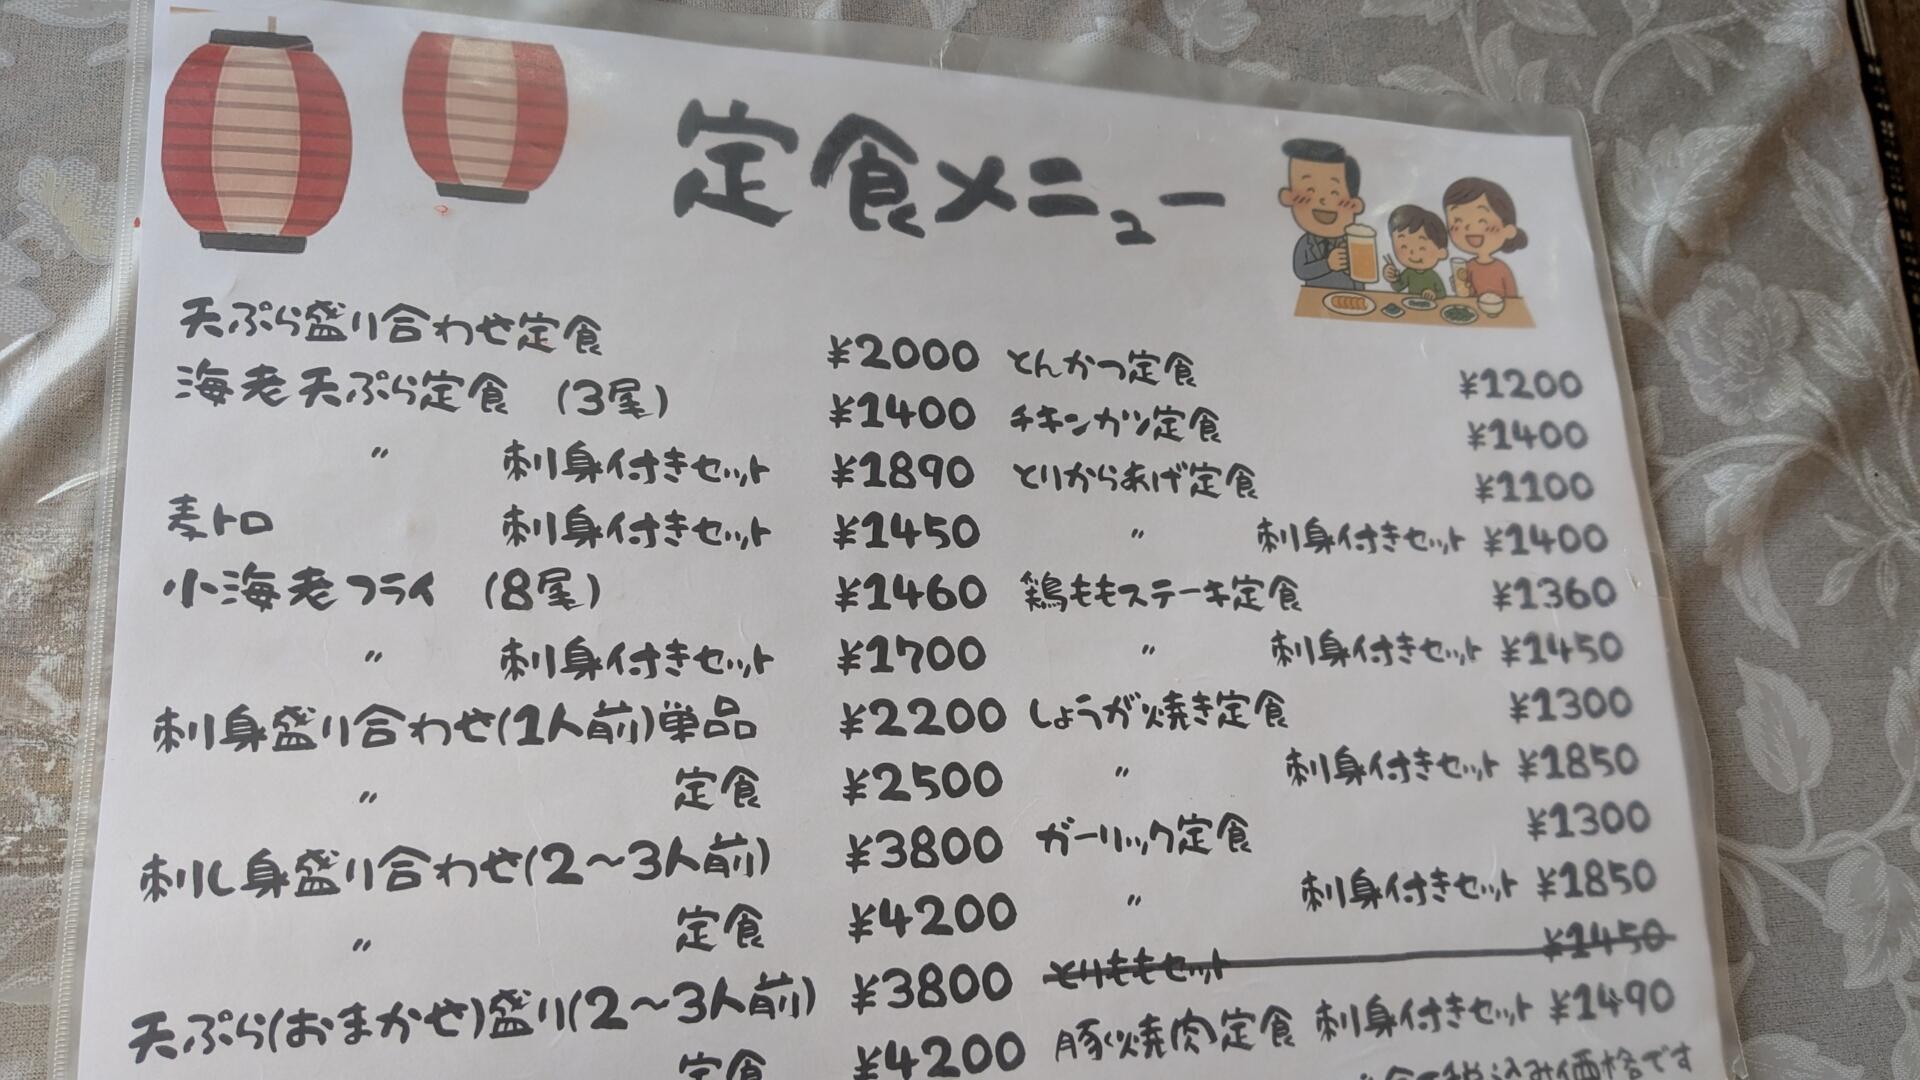 定食メニュー
天ぷら盛り合わせ定食 ¥2000
海老天ぷら定食 (3尾) ¥1400
〃 刺身付きセット ¥1890
麦トロ 刺身付きセット ¥1450
小海老フライ (8尾) ¥1460
〃 刺身付きセット ¥1700
刺身盛り合わせ(1人前)単品 ¥2200
〃 定食 ¥2500
刺し身盛り合わせ(2〜3人前) ¥3800
〃 定食 ¥4200
天ぷら(おまかせ)盛り(2〜3人前) ¥3800
定食 ¥4200
とんかつ定食 ¥1200
チキンカツ定食 ¥1400
とりからあげ定食 ¥1100
〃 刺身付きセット ¥1400
鶏ももステーキ定食 ¥1360
〃 刺身付きセット ¥1450
しょうが焼き定食 ¥1300
〃 刺身付きセット ¥1850
ガーリック定食 ¥1300
〃 刺身付きセット ¥1850
とりももセット ¥1450
豚焼肉定食 刺身付きセット ¥1490
全て税込み価格です